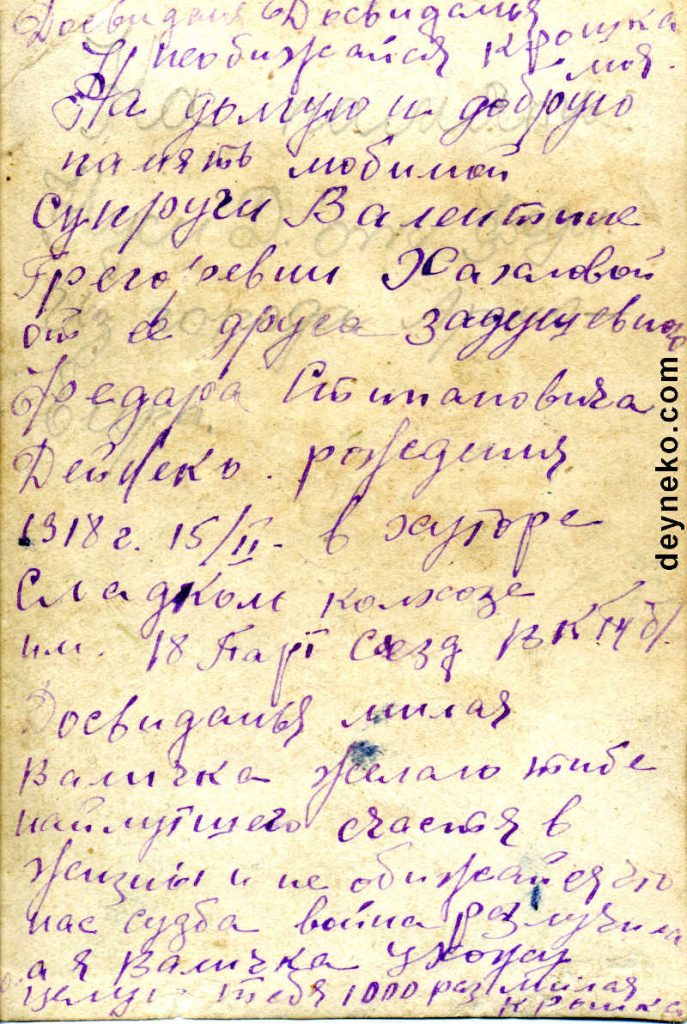 Досвидания Досвиданья
И необижайся крошка
моя.
На долгую и добрую
память любимой
супруги Валентине
Грегорьевни Хахаловой
от её друга задушевного
Федара Стипановича
Дейнеко. рождения
1918 г. 15/II. в хуторе
Сладком колхозе
им. 18 Парт Сезд ВК.П(б).
Досвиданья милая
Валичка желаю тибе
найлутшего счастя в
жизны и не обижайся что
нас судба война разлучила
а я Валичка ухожу
целую тебя 1000 раз милая
крошка
deyneko.com